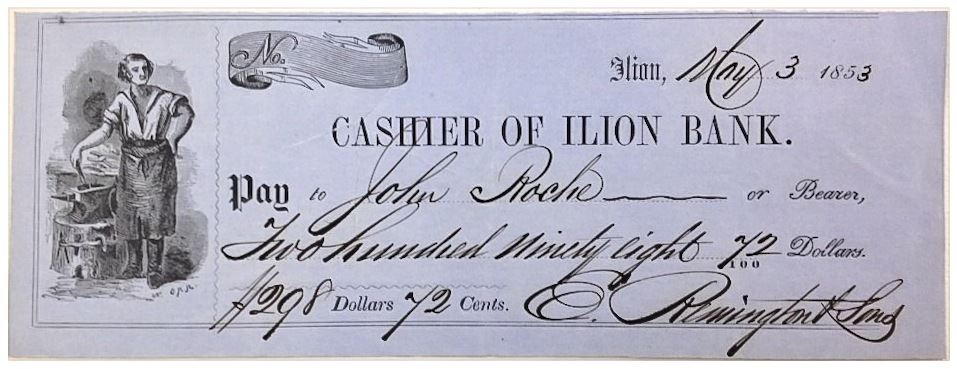 No.
Ilion, May 3 1853
CASHIER OF ILION BANK.
Pay to John Roche or Bearer,
Two hundred ninety eight 72/100 Dollars.
$298 Dollars 72 Cents. E. Remington & Sons